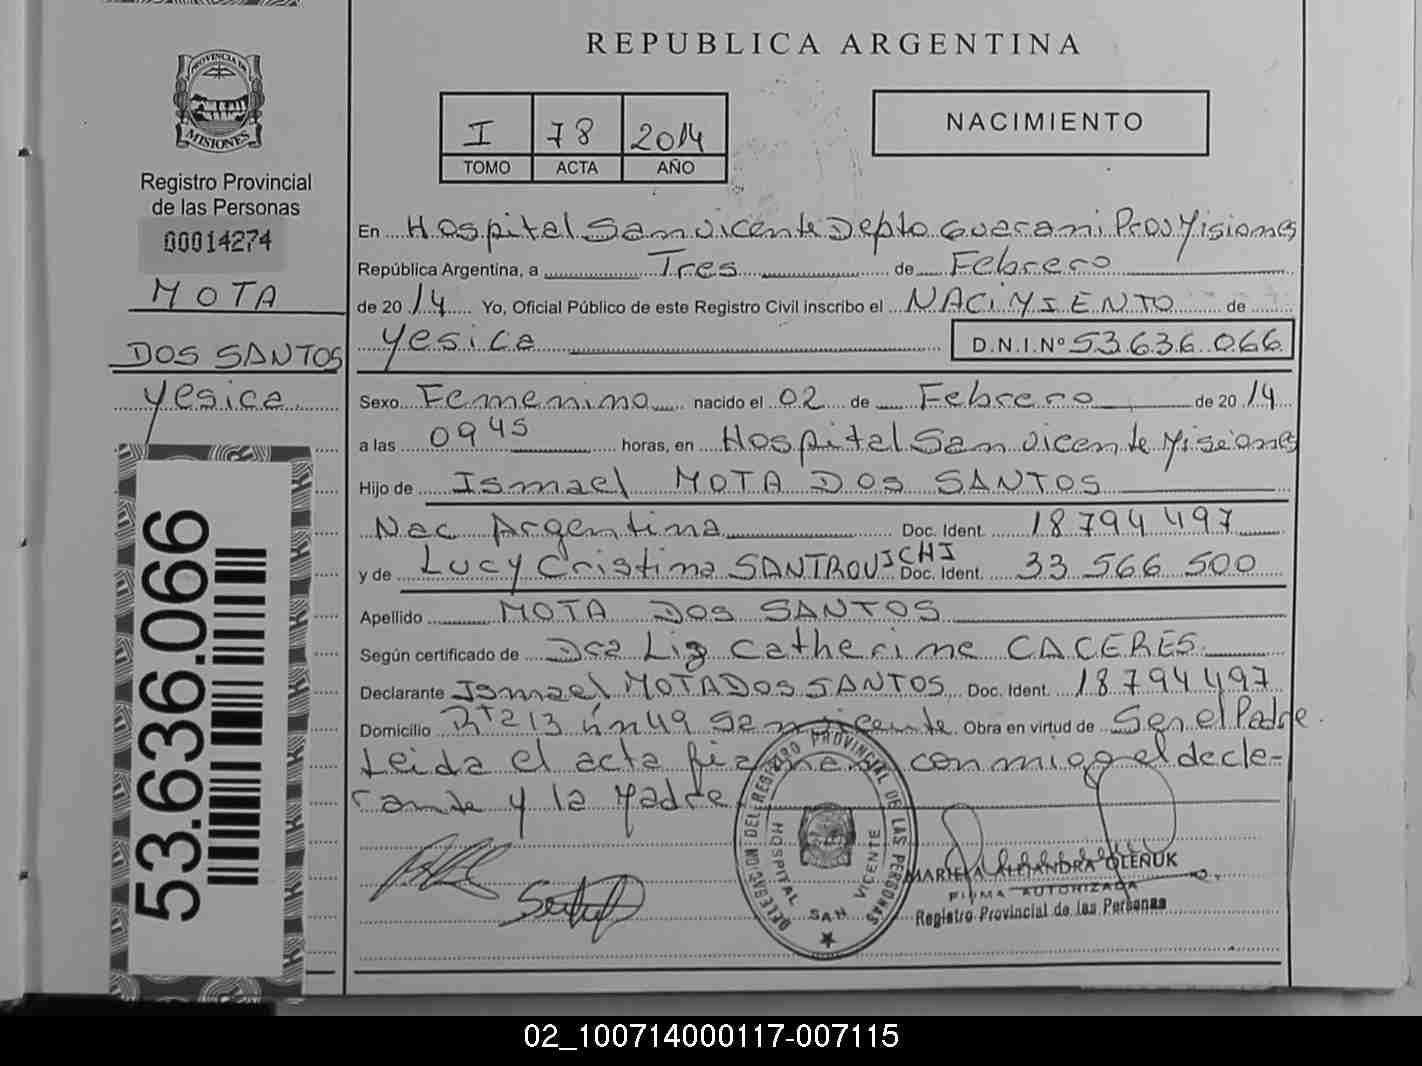 REPUBLICA ARGENTINA
PROVINCIA DE
MISIONES
Registro Provincial
de las Personas
00014274
MOTA
DOS SANTOS
Yesica
53.636.066
I 78 2014
TOMO ACTA AÑO
NACIMIENTO
En Hospital San Vicente Depto Guarani Prov Misiones
República Argentina, a Tres de Febrero
de 20 14 Yo, Oficial Público de este Registro Civil inscribo el NACIMIENTO de
Yesica D.N.I.Nº 53.636.066
Sexo Femenino nacido el 02 de Febrero de 20 14
a las 09 45 horas, en Hospital San Vicente Misiones
Hijo de Ismael MOTA DOS SANTOS
Nac Argentina Doc. Ident. 18 794 497
y de Lucy Cristina SANTROVICHI Doc. Ident. 33 566 500
Apellido MOTA DOS SANTOS
Según certificado de Dra Liz Catherine CACERES
Declarante Ismael MOTA DOS SANTOS Doc. Ident. 18 794 497
Domicilio Rt 213 km 49 San Vicente Obra en virtud de Ser el Padre
Leida el acta firman conmigo el decla-
rante y la Madre
DELEGACION DEL REGISTRO PROVINCIAL DE LAS PERSONAS
HOSPITAL SAN VICENTE
MARIELA ALEJANDRA OLEÑUK
FIRMA AUTORIZADA
Registro Provincial de las Personas
02_100714000117-007115